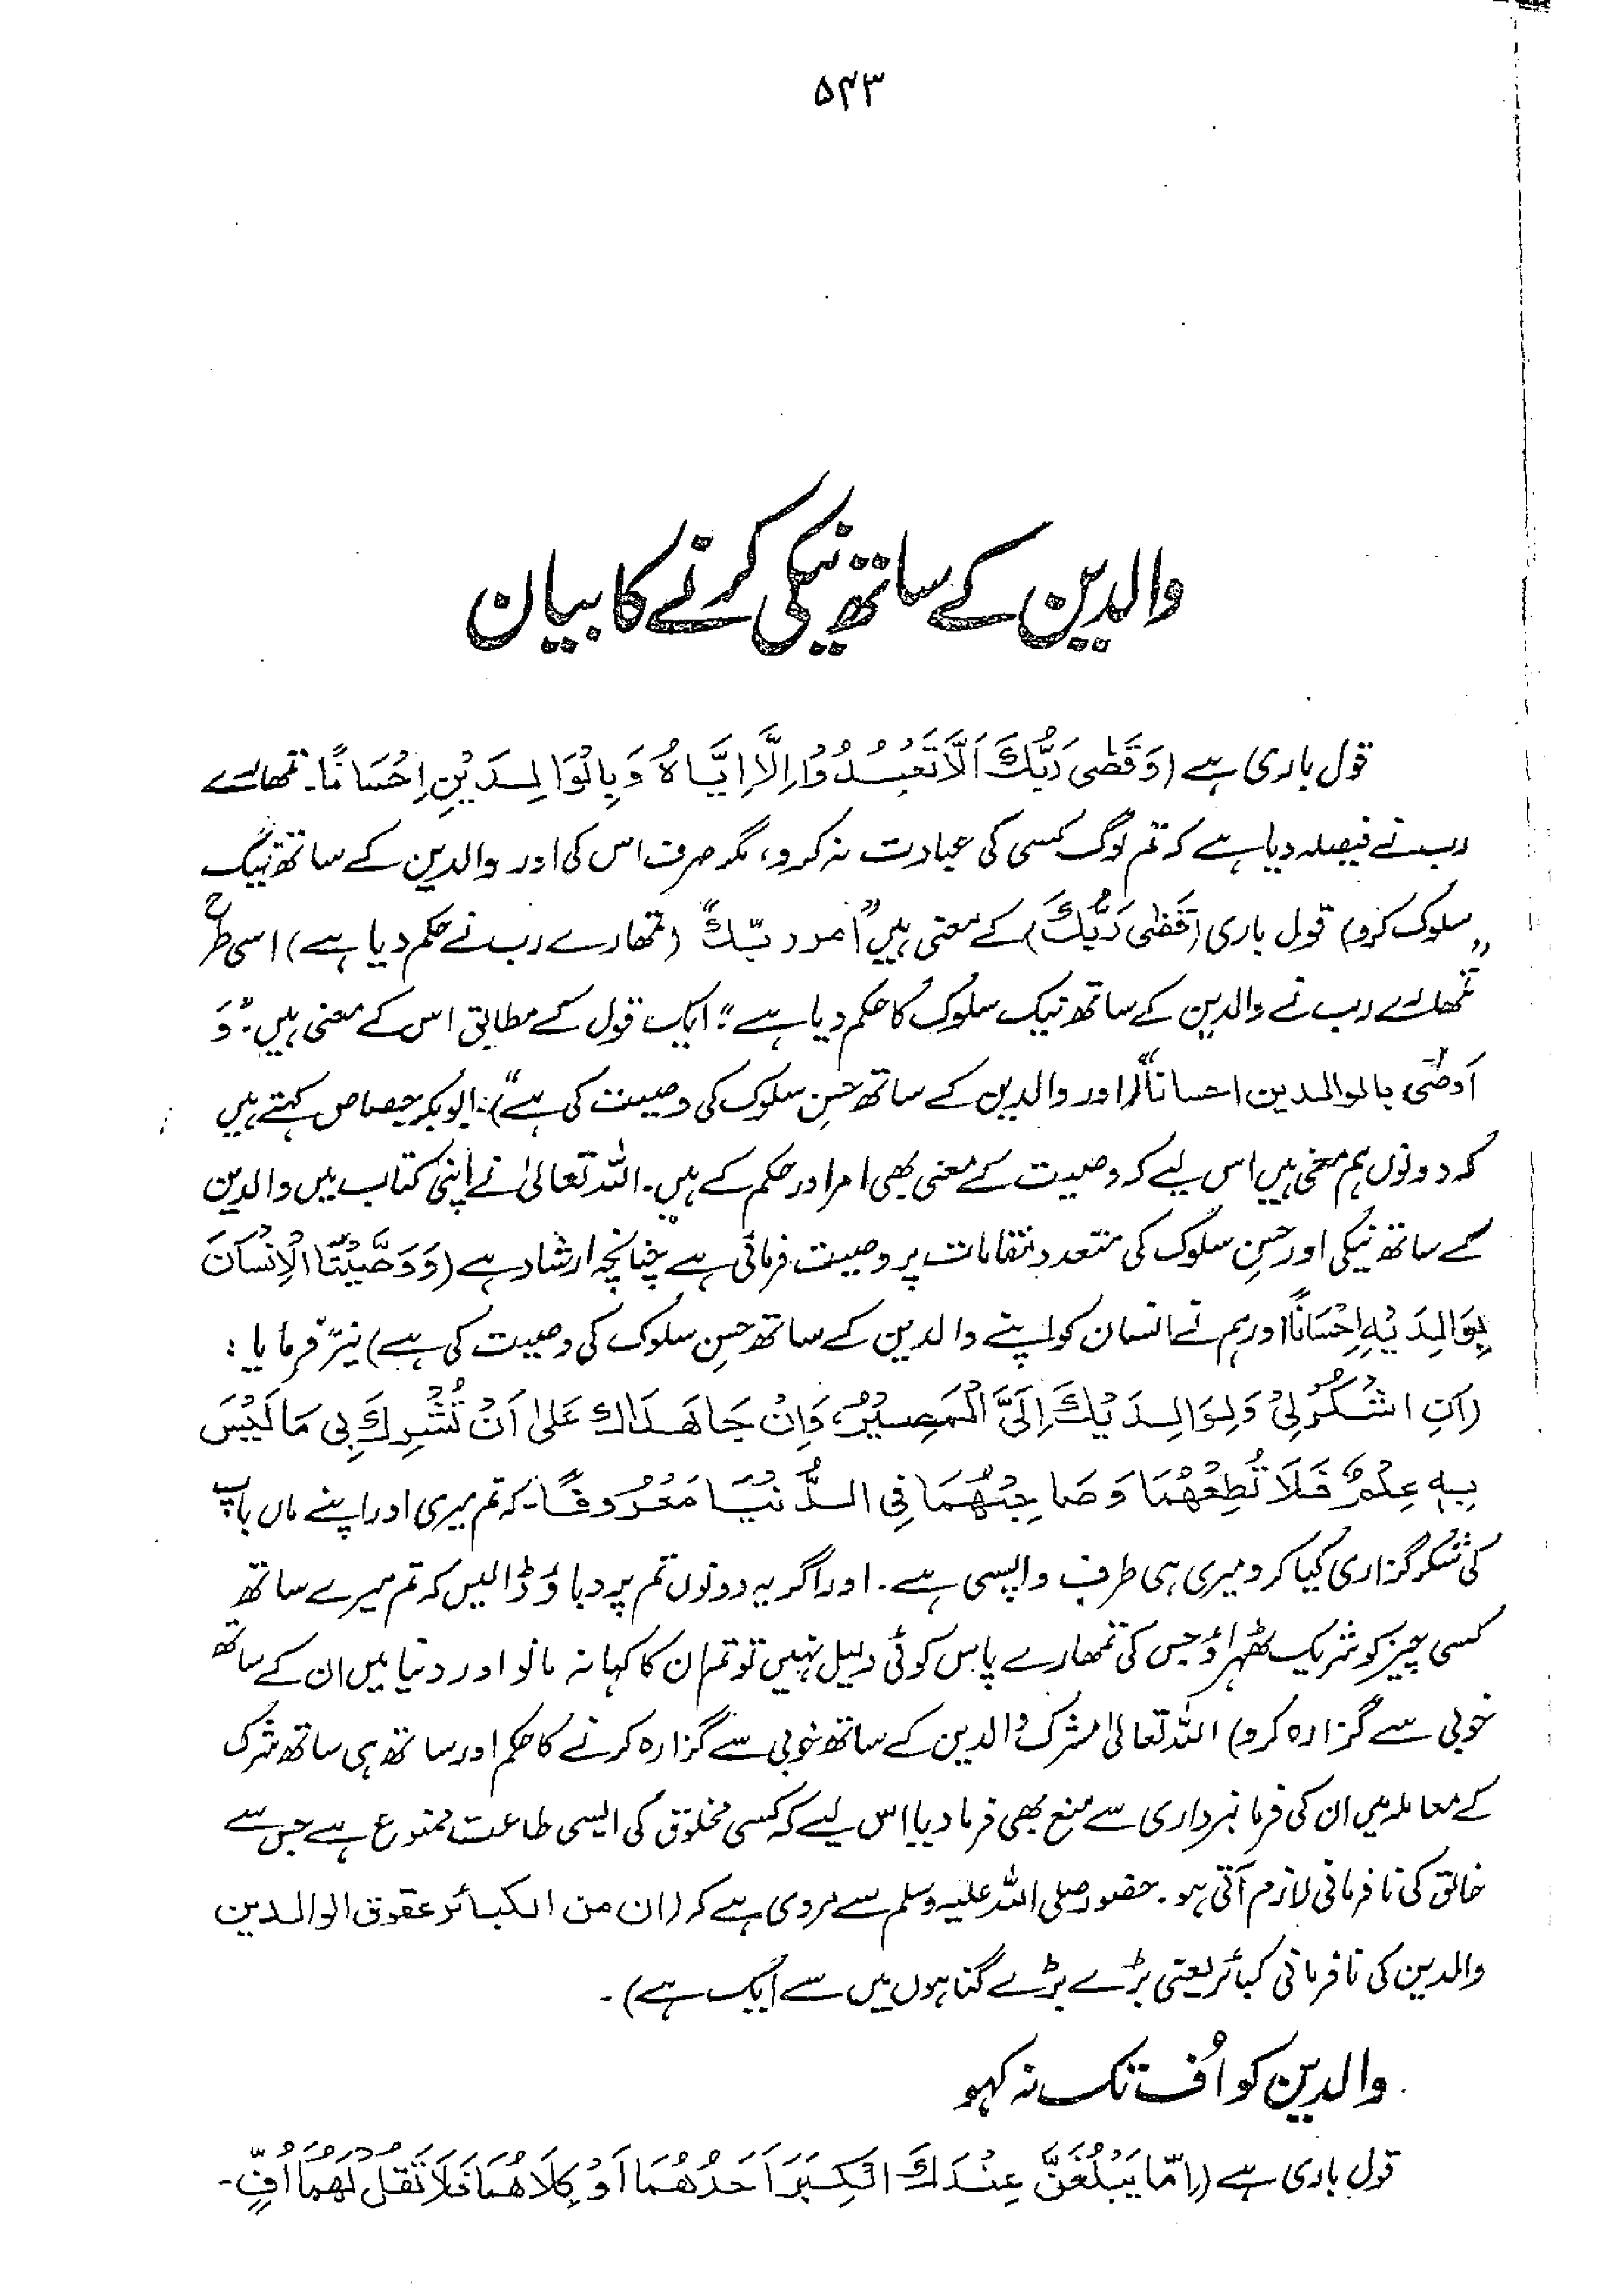 ۵۴۳
والدین کے ساتھ نیکی کرنے کا بیان
قول باری ہے (وَقَضٰى رَبُّكَ اَلَّا تَعْبُدُوْا اِلَّا اِيَّاهُ وَبِالْوَالِدَيْنِ اِحْسَانًا۔ تمھارے
رب نے فیصلہ دیا ہے کہ تم لوگ کسی کی عبادت نہ کرو، مگر صرف اس کی اور والدین کے ساتھ نیک
سلوک کرو) قول باری (قَضٰى رَبُّكَ) کے معنی ہیں "امر ربّك" (تمھارے رب نے حکم دیا ہے) اسی طرح
"تمھارے رب نے والدین کے ساتھ نیک سلوک کا حکم دیا ہے"؛ ایک قول کے مطابق اس کے معنی ہیں "وَ
اَوصٰی بالوالدین احسانا" (اور والدین کے ساتھ حسنِ سلوک کی وصیت کی ہے"): ابوبکر جصاص کہتے ہیں
کہ دونوں ہم معنی ہیں اس لیے کہ وصیت کے معنی بھی امر اور حکم کے ہیں۔ اللہ تعالیٰ نے اپنی کتاب میں والدین
کے ساتھ نیکی اور حسنِ سلوک کی متعدد مقامات پر وصیت فرمائی ہے چنانچہ ارشاد ہے (وَوَصَّيْنَا الْاِنْسَانَ
بِوَالِدَيْهِ اِحْسَانًا اور ہم نے انسان کو اپنے والدین کے ساتھ حسنِ سلوک کی وصیت کی ہے) نیز فرمایا:
(اَنِ اشْكُرْلِیْ وَلِوَالِدَيْكَ اِلَیَّ الْمَصِيْرُ، وَاِنْ جَاهَدَاكَ عَلٰى اَنْ تُشْرِكَ بِی مَا لَيْسَ
بِهٖ عِلْمٌ فَلَا تُطِعْهُمَا وَصَاحِبْهُمَا فِی الدُّنْيَا مَعْرُوفًا۔ کہ تم میری اور اپنے ماں باپ
کی شکر گزاری کیا کرو میری ہی طرف واپسی ہے۔ اور اگر یہ دونوں تم پر دباؤ ڈالیں کہ تم میرے ساتھ
کسی چیز کو شریک ٹھہراؤ جس کی تمھارے پاس کوئی دلیل نہیں تو تم ان کا کہا نہ مانو اور دنیا میں ان کے ساتھ
خوبی سے گزارہ کرو) اللہ تعالیٰ مشرک والدین کے ساتھ خوبی سے گزارہ کرنے کا حکم اور ساتھ ہی ساتھ شرک
کے معاملہ میں ان کی فرمانبرداری سے منع بھی فرما دیا اس لیے کہ کسی مخلوق کی ایسی طاعت ممنوع ہے جس سے
خالق کی نافرمانی لازم آتی ہو۔ حضور صلی اللہ علیہ وسلم سے مروی ہے کہ (ان من الكبائر عقوق الوالدين
والدین کی نافرمانی کبائر یعنی بڑے بڑے گناہوں میں سے ایک ہے)۔
والدین کو اُف تک نہ کہو
قول باری ہے (اِمَّا يَبْلُغَنَّ عِنْدَكَ الْكِبَرَ اَحَدُهُمَا اَوْ كِلَاهُمَا فَلَا تَقُلْ لَهُمَا اُفٍّ۔